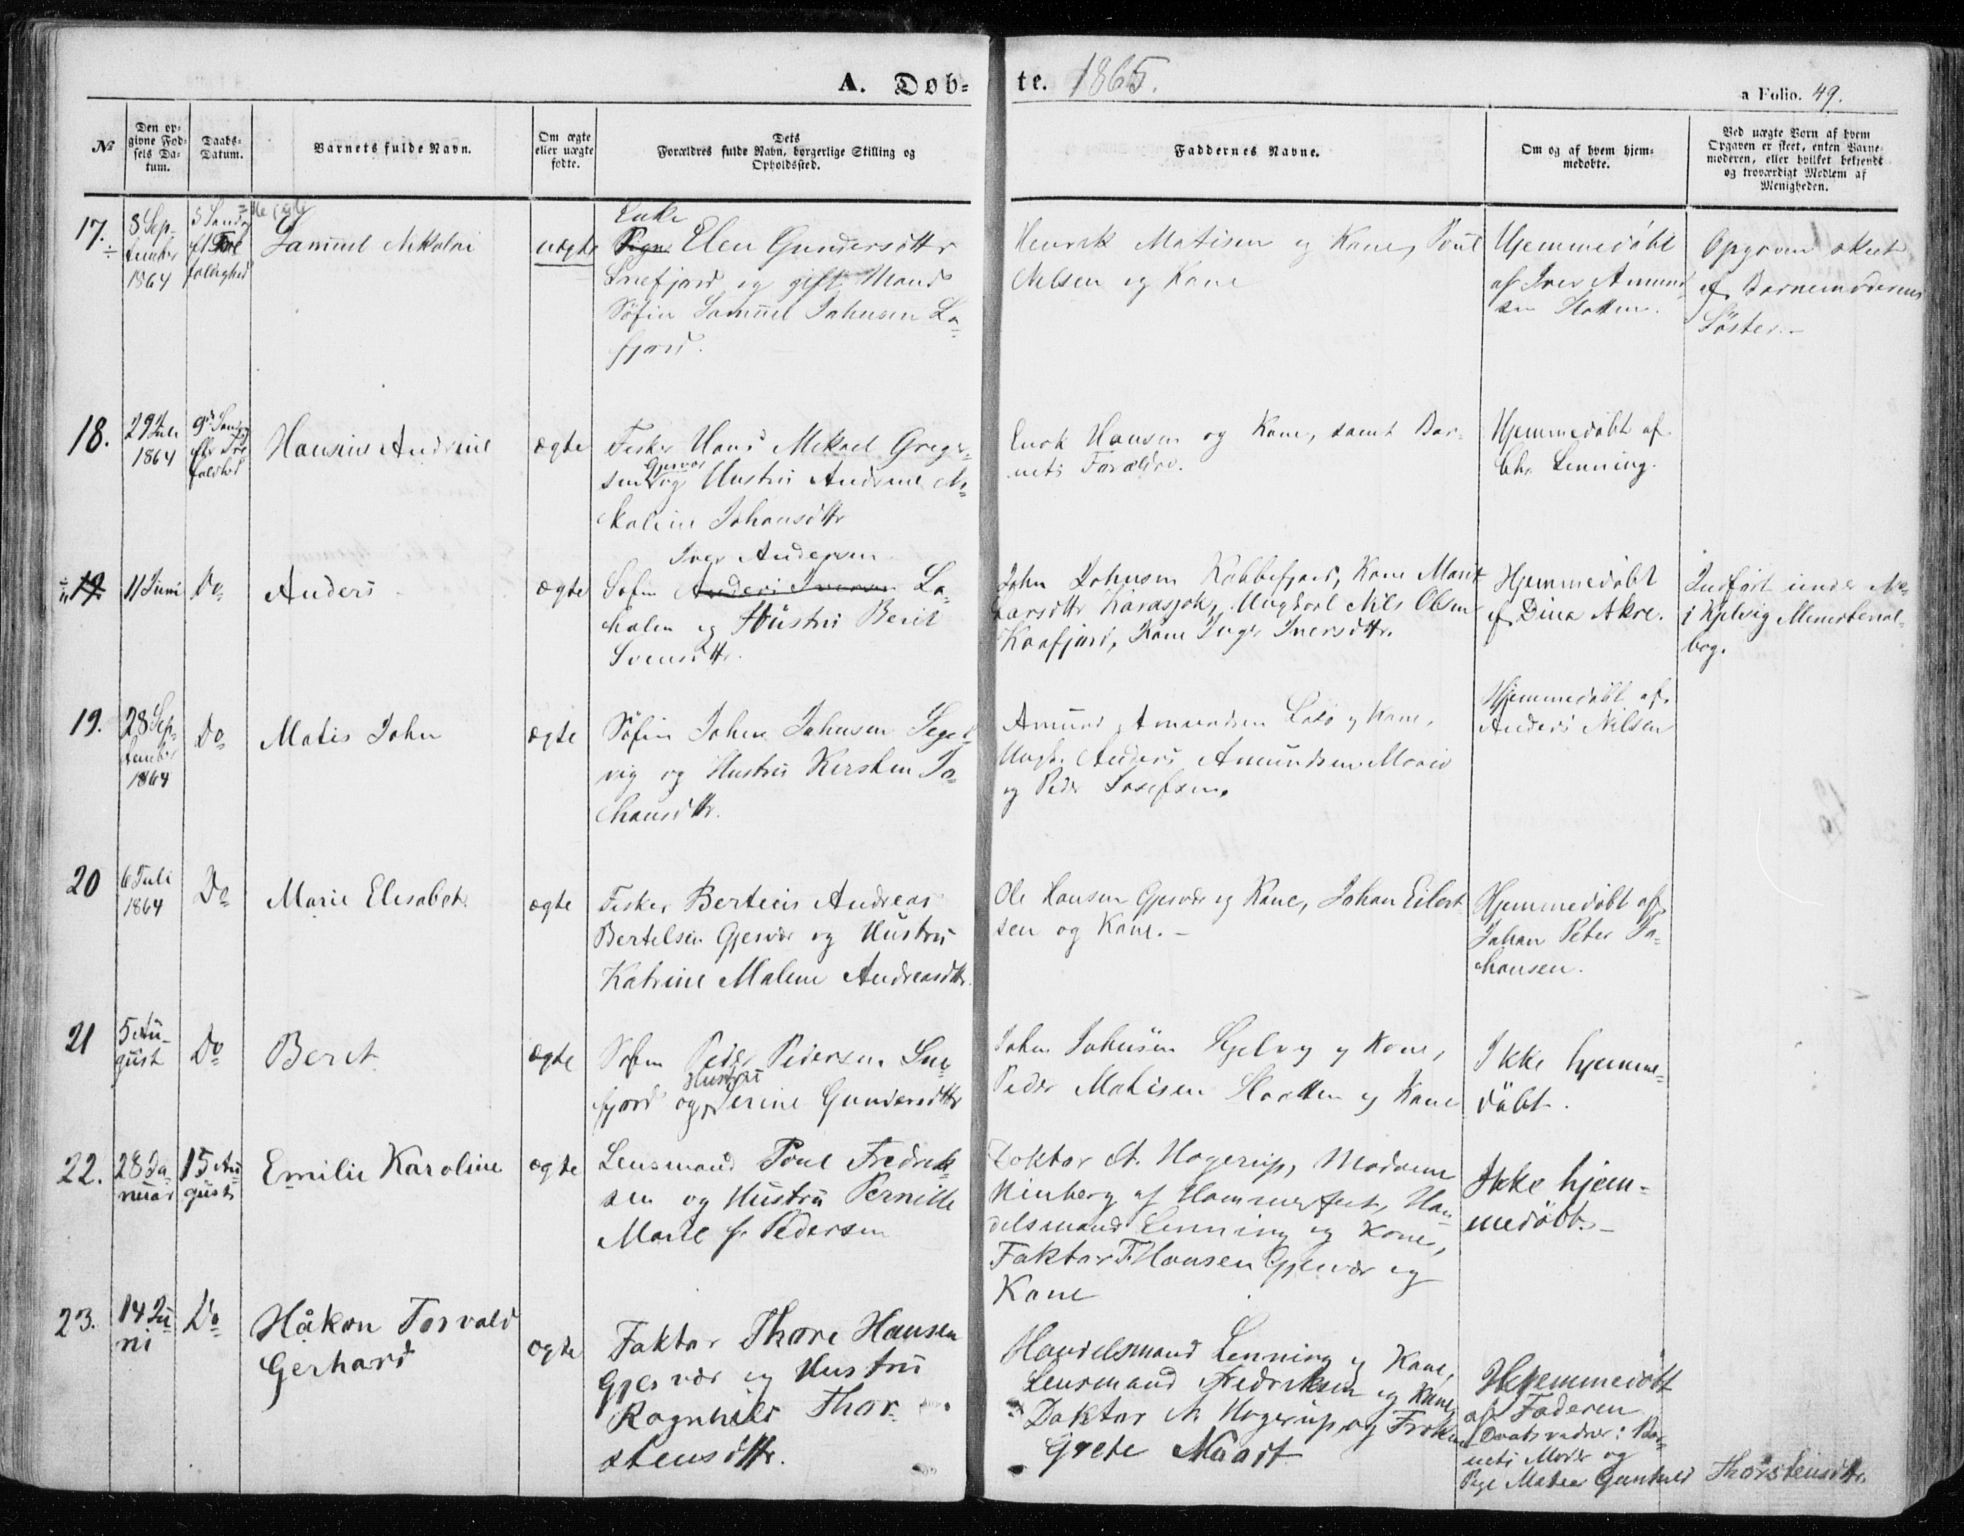 A. Døb-
te. 1865.
a Folio. 49.
No
Den op-
givne Fød-
sels Da-
tum.
Daabs-
Datum.
Barnets fulde Navn.
Om ægte
eller uægte
fødte.
Dets
Forældres fulde Navn, borgerlige Stilling og
Opholdssted.
Faddernes Navne.
Om og af hvem hjem-
medøbte.
Ved uægte Børn af hvem
Opgaven er skeet, enten Barne-
moderen, eller hvilket bekjendt
og troværdigt Medlem af
Menigheden.
17.
8 Sep-
tember
1864
5 Sondag
eft Tre
foldighed
Samuel Nikolai
uægte
Enke
Pige Elen Gundersdttr
Snefjord og gift Mand
Søfin Samuel Johnsen La-
fjord.
Henrik Matisen og Kone, Poul
Nilsen og Kone
Hjemmedøbt
af Iver Amund-
sen Hatten.
Opgaven skeet
af Barnemoderens
Søster.-
18.
29 Juli
1864
9de Sondag
eftr Tre
foldighed
Hansine Andrine
ægte
Fisker Hans Mikael Greger-
sen Gjesvær og Hustru Andrine Ni-
koline Johansdttr
Enok Hansen og Kone, samt Bar-
nets Forældre.
Hjemmedøbt af
Chr Lenning.
19.
11 Juni
Do
Anders
ægte
Iver Andersen
Søfin Anders Iversen La-
holm og Hustru Berit
Svensdttr.
John Johnsen Kobbefjord, Kone Marit
Larsdttr Karasjok, Ungkarl Nils Olsen
Kaafjord, Kone Inger Iversdttr.
Hjemmedøbt
af Dina Akre.
Indført under No
i Kjelvig Ministerial-
bog.
19.
28 Sep-
tember
1864
Do
Matis John
ægte
Søfin John Johnsen Segel-
vig og Hustru Kirsten Jo-
hansdttr.
Amund Amundsen og Kone,
Ungk. Anders Amundsen
og Peder Josefsen.
Hjemmedøbt af
Anders Nilsen
20
6 Juli
1864
Do
Marie Elisabet
ægte
Fisker Berteus Andreas
Bertelsen Gjesvær og Hustru
Katrine Malene Andreasdttr.
Ole Hansen Gjesvær og Kone, Johan Eilert
sen og Kone.-
Hjemmedøbt af
Johan Peter Jo-
hansen.
21
5 Au-
gust
Do
Berit
ægte
Søfin Peder Pedersen Sne-
fjord og Hustru Serine Gundersdttr
John Johnsen og Kone,
Peder Matisen Hatten og Kone
Ikke hjemme-
døbt.
22.
28 Ja
nuar
15 Au
gust
Emilie Karoline
ægte
Lensmand Poul Fredrik-
sen og Hustru Pernille
Marie f. Pedersen
Doktor A. Hagerup, Madame
Ninberg af Hammerfest, Han-
delsmand Lenning og Kone,
Faktor T. Hansen Gjesvær og
Kone
Ikke hjem-
medøbt.-
23.
14 Ju
ni
Do
Håkon Torvald
Gerhard
ægte
Faktor Thore Hansen
Gjesvær og Hustru
Ragnhild Thor-
stensdttr.
Handelsmand Lenning og Kone,
Lensmand Fredriksen og Kone,
Doktor A. Hagerup og Frøken
Grete
Hjemmedøbt
af Faderen
Daabsvidner: Bar-
nets Moder og
Pige Matea Gunhild Thorstensdttr.